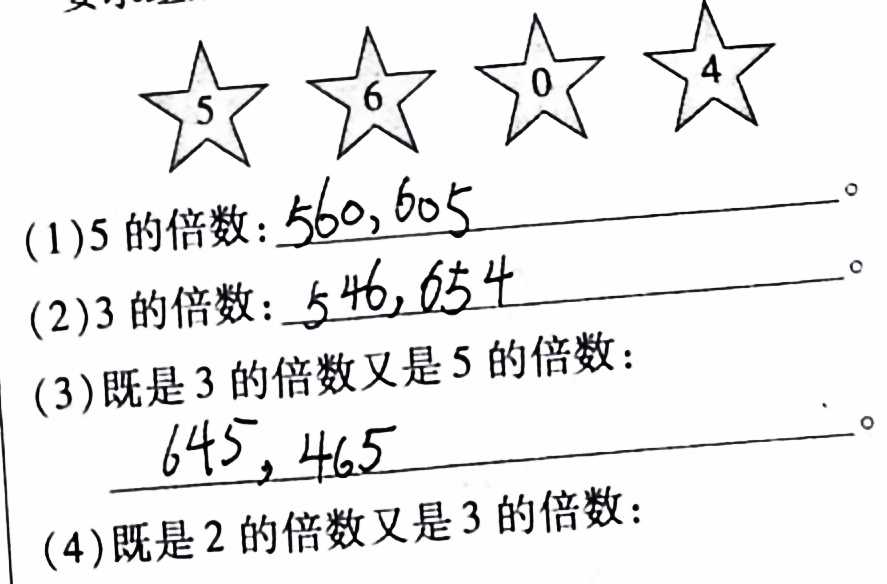 5 6 0 4
(1)5 的倍数:560,605。
(2)3 的倍数:546,654。
(3)既是 3 的倍数又是 5 的倍数:
645,465。
(4)既是 2 的倍数又是 3 的倍数: